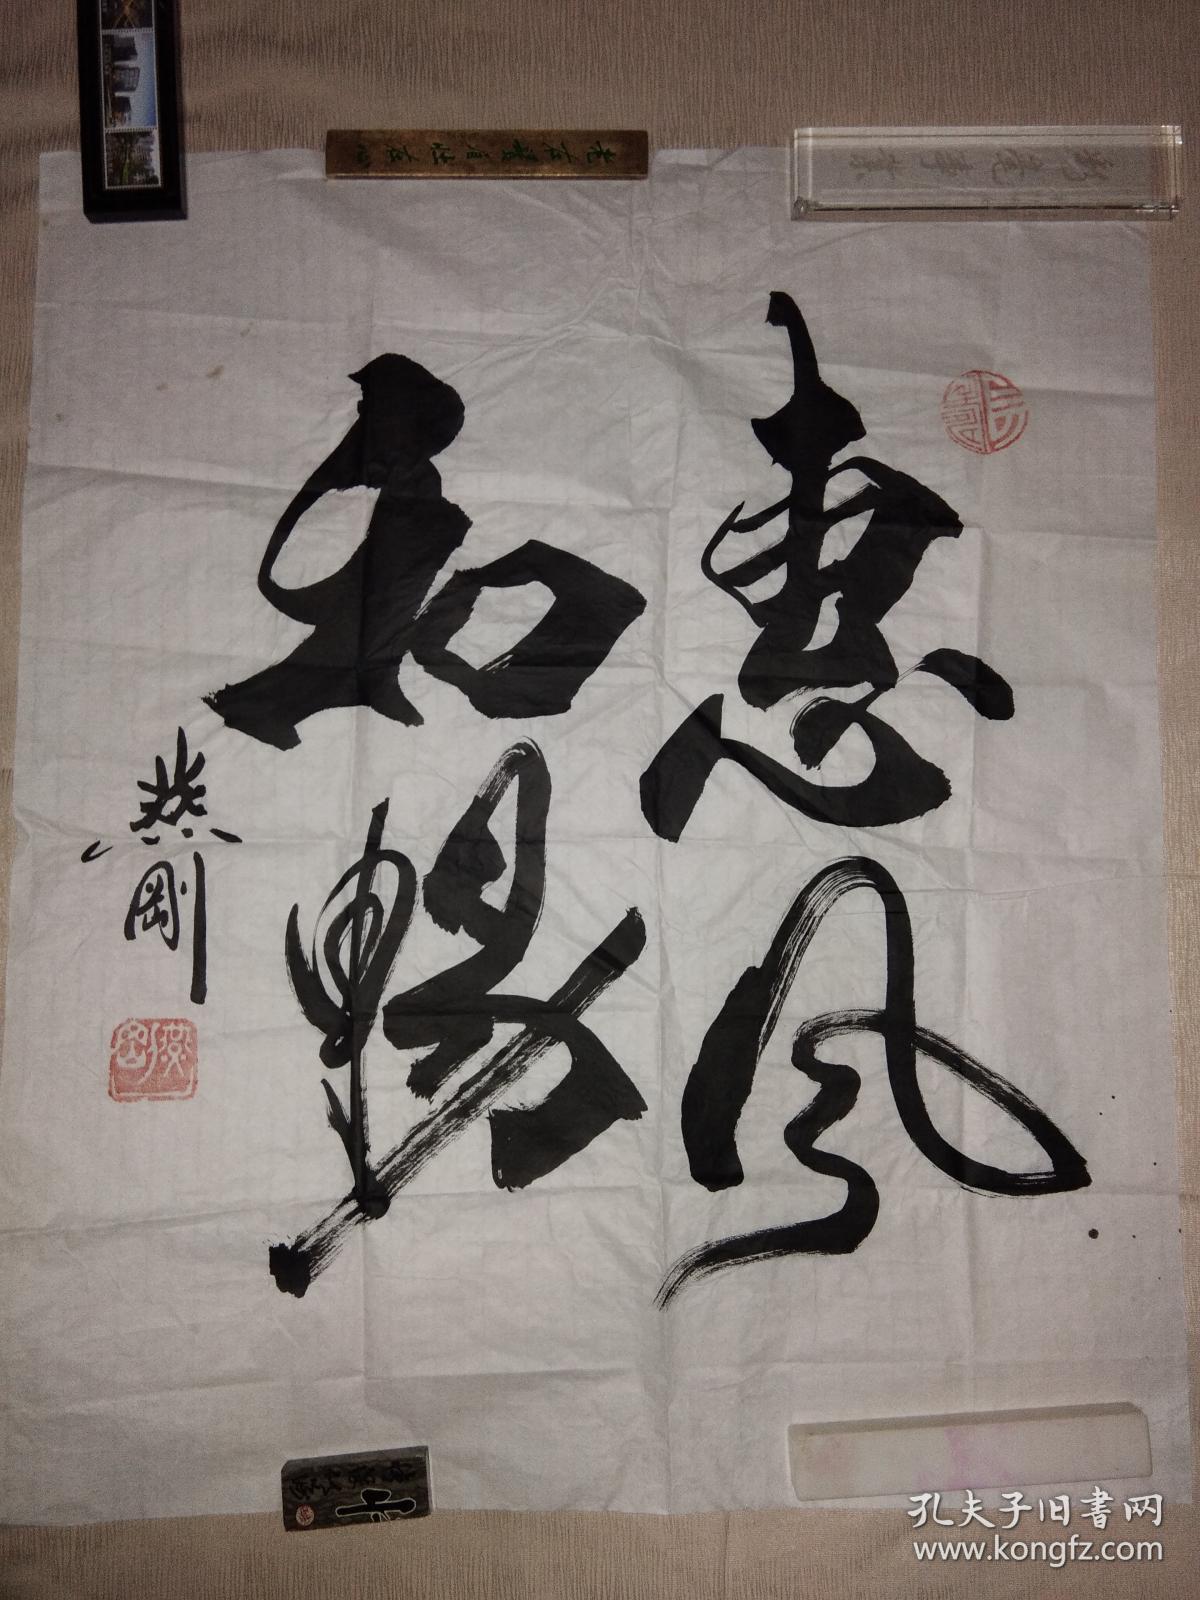 惠风
和畅
燕刚
燕刚
孔夫子旧书网
www.kongfz.com